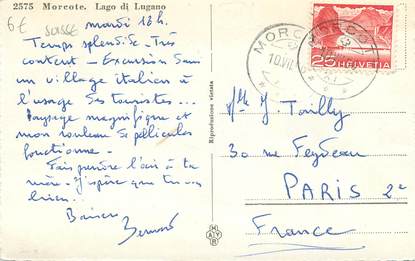 2575 Morcote. Lago di Lugano
6€ suisse
mardi 18h.
Temps splendide. Très
content - Excursion dans
un village italien à
l'usage des touristes...
Paysage magnifique et
mon rouleau de pellicules
fonctionne.
Fais prendre l'air à ta
mère. J'espère que tu vas
bien.
Baisers
Bernard
Riproduzione vietata
MORCOTE
10.VII.
25 HELVETIA
Mlle J. Touilly
30 rue Feydeau
PARIS 2e
France